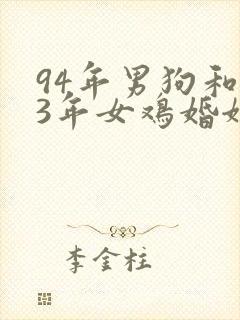 94年男狗和
3年女鸡婚
李金柱